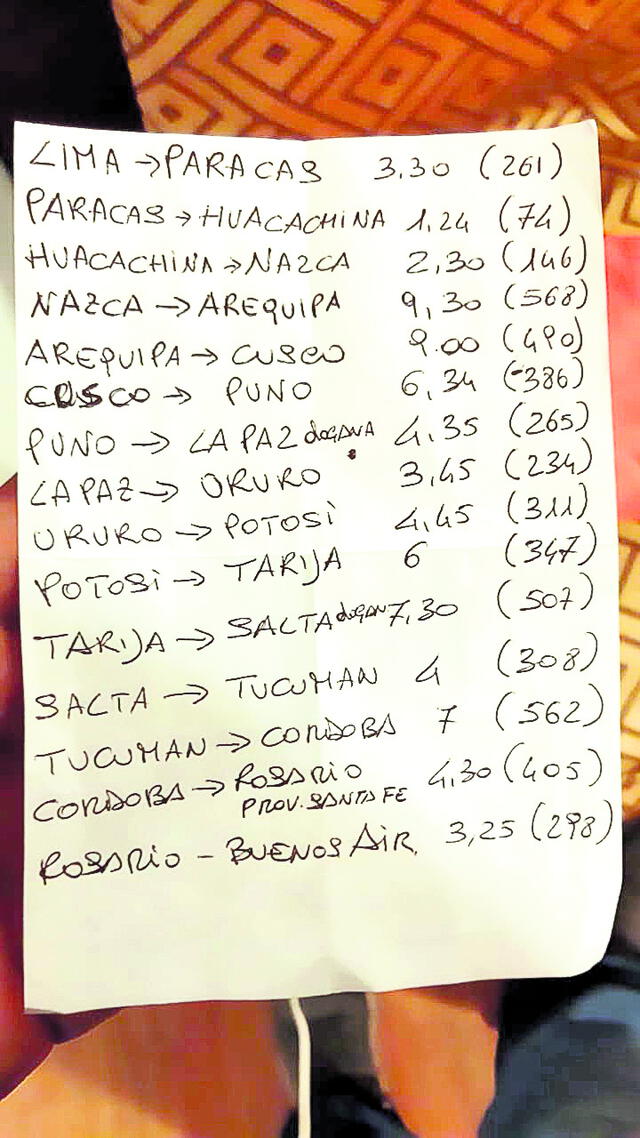 LIMA → PARACAS 3,30 (261)
PARACAS → HUACACHINA 1,24 (74)
HUACACHINA → NAZCA 2,30 (146)
NAZCA → AREQUIPA 9,30 (568)
AREQUIPA → CUSCO 9.00 (490)
CUSCO → PUNO 6,34 (386)
PUNO → LA PAZ dogana 4,35 (265)
LA PAZ → ORURO 3,45 (234)
URURO → POTOSÌ 4,45 (311)
POTOSì → TARIJA 6 (347)
TARIJA → SALTA dogan 7,30 (507)
SALTA → TUCUMAN 4 (308)
TUCUMAN → CORDOBA 7 (562)
CORDOBA → ROSARIO 4,30 (405)
PROV. SANTA FE
ROSARIO - BUENOS AIR. 3,25 (298)